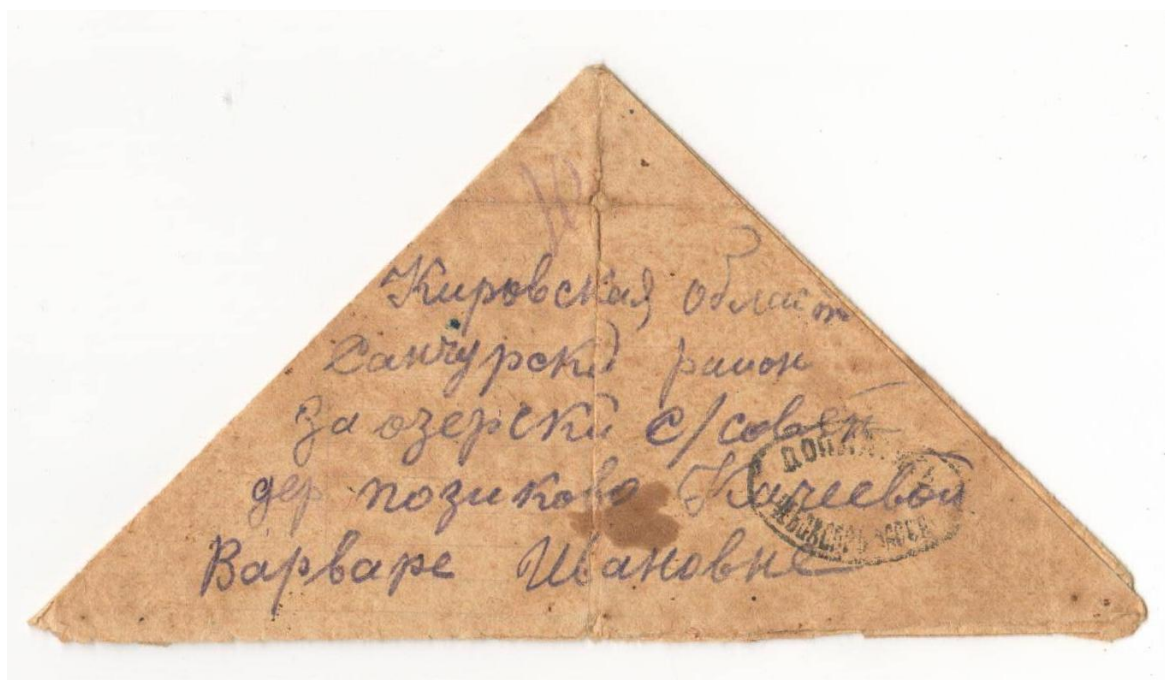 Кировская област
Санчурски район
За озерски с/совет
дер позиково Качеевой
Варваре Ивановне
ДОПЛ